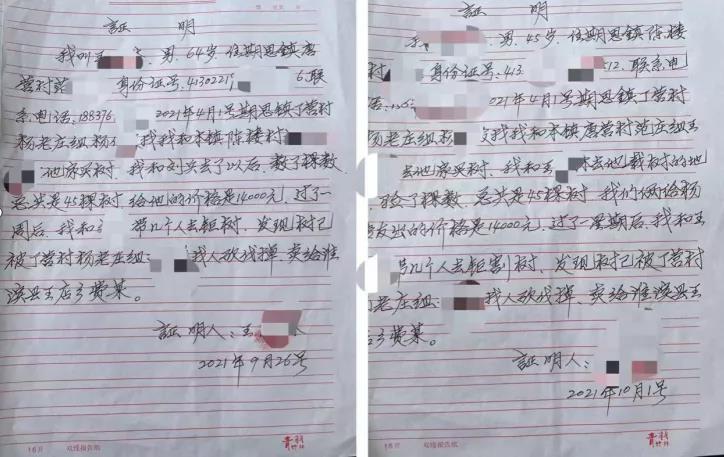 証 明
我叫王 男.64岁.住期思镇唐
营村范 身份证号:41302219 6.联
系电话:188376 2021年4月1号期思镇丁营村
杨老庄组杨 找我和本镇陈楼村
他家买树.我和刘 去了以后.数了棵数.
总共是45棵树.给他的价格是14000元.过了一
周后.我和 带几个人去钜树.发现树已
被丁营村杨老庄组 找人砍伐掉.卖给淮
滨县王店乡费某。
証明人:王
2021年9月26号
16开 双线报告纸
証 明
男.45岁.住期思镇陈楼
村 身份证号:413 512.联系电
话: 021年4月1号期思镇丁营村
杨老庄组杨 找我和本镇唐营村范庄组王
去他家买树.我和王 去他栽树的地
验了棵数.总共是45棵树.我们俩给杨
发出的价格是14000元.过了一星期后.我和王
带几个人去钜割树.发现树已被丁营村
老庄组 找人砍伐掉.卖给淮滨县王
乡费某。
証明人:
2021年10月1号
16开 双线报告纸